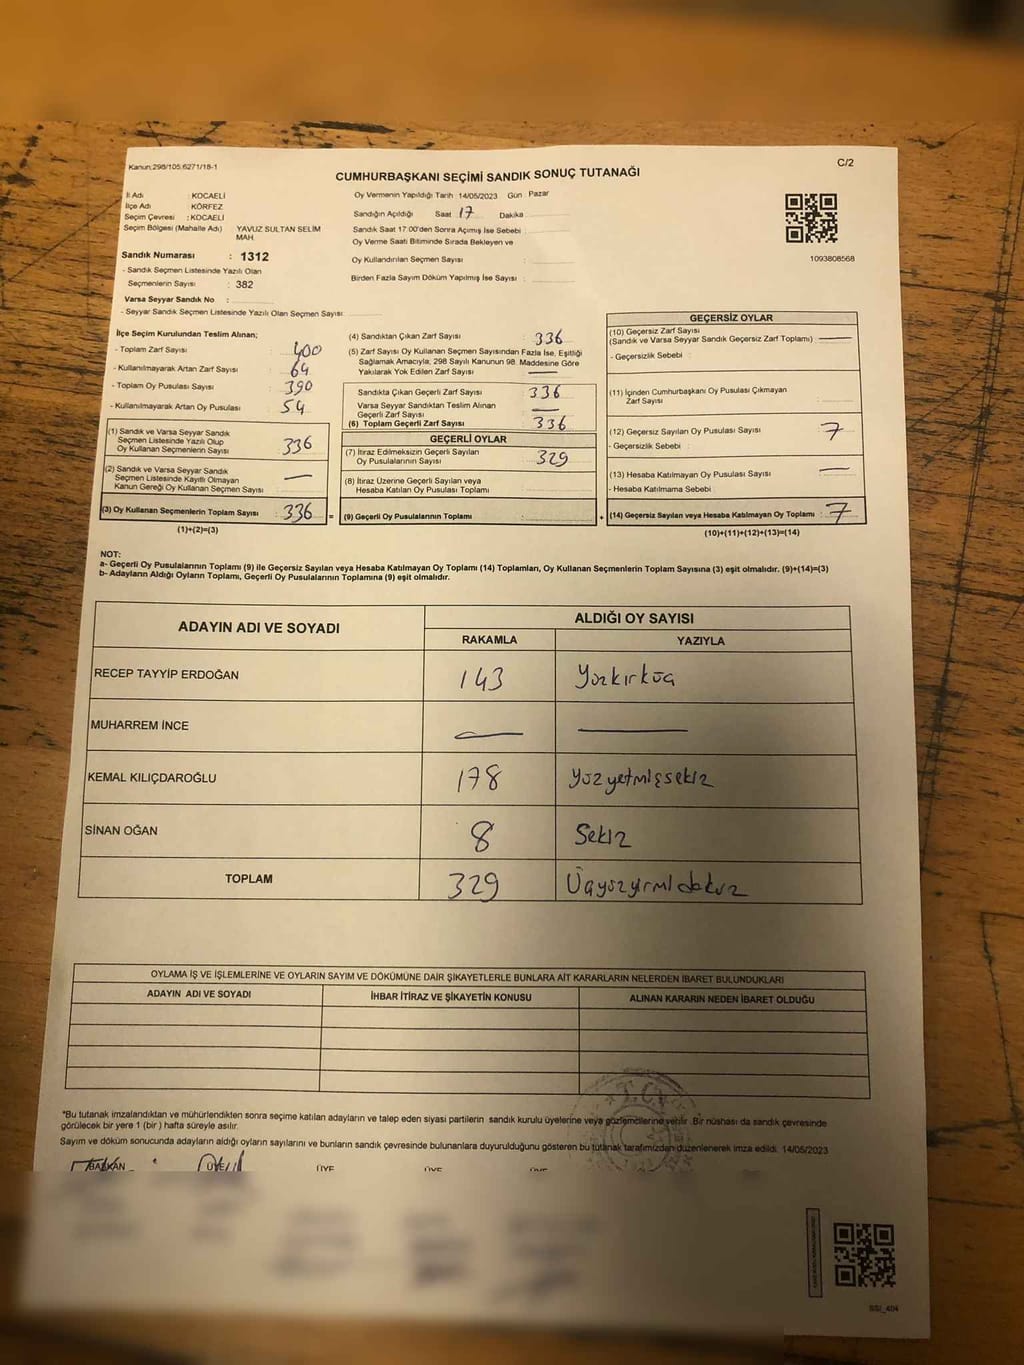 Kanun:298/105,6271/18-1
C/2
CUMHURBAŞKANI SEÇİMİ SANDIK SONUÇ TUTANAĞI
İl Adı : KOCAELİ
İlçe Adı : KÖRFEZ
Seçim Çevresi : KOCAELİ
Seçim Bölgesi (Mahalle Adı) YAVUZ SULTAN SELİM
MAH.
Sandık Numarası : 1312
- Sandık Seçmen Listesinde Yazılı Olan
Seçmenlerin Sayısı : 382
Varsa Seyyar Sandık No :
- Seyyar Sandık Seçmen Listesinde Yazılı Olan Seçmen Sayısı:
Oy Vermenin Yapıldığı Tarih :14/05/2023 Gün : Pazar
Sandığın Açıldığı Saat 17 Dakika
Sandık Saat 17:00'den Sonra Açımış İse Sebebi
Oy Verme Saati Bitiminde Sırada Bekleyen ve
Oy Kullandırılan Seçmen Sayısı :
Birden Fazla Sayım Döküm Yapılmış İse Sayısı :
1093808568
İlçe Seçim Kurulundan Teslim Alınan;
- Toplam Zarf Sayısı : 400
- Kullanılmayarak Artan Zarf Sayısı : 64
- Toplam Oy Pusulası Sayısı : 390
- Kullanılmayarak Artan Oy Pusulası : 54
(1) Sandık ve Varsa Seyyar Sandık
Seçmen Listesinde Yazılı Olup
Oy Kullanan Seçmenlerin Sayısı : 336
(2) Sandık ve Varsa Seyyar Sandık
Seçmen Listesinde Kayıtlı Olmayan
Kanun Gereği Oy Kullanan Seçmen Sayısı : —
(3) Oy Kullanan Seçmenlerin Toplam Sayısı : 336 =
(1)+(2)=(3)
(4) Sandıktan Çıkan Zarf Sayısı : 336
(5) Zarf Sayısı Oy Kullanan Seçmen Sayısından Fazla İse, Eşitliği
Sağlamak Amacıyla; 298 Sayılı Kanunun 98. Maddesine Göre
Yakılarak Yok Edilen Zarf Sayısı : —
Sandıkta Çıkan Geçerli Zarf Sayısı : 336
Varsa Seyyar Sandıktan Teslim Alınan
Geçerli Zarf Sayısı : —
(6) Toplam Geçerli Zarf Sayısı : 336
GEÇERLİ OYLAR
(7) İtiraz Edilmeksizin Geçerli Sayılan
Oy Pusulalarının Sayısı : 329
(8) İtiraz Üzerine Geçerli Sayılan veya
Hesaba Katılan Oy Pusulası Toplamı :
(9) Geçerli Oy Pusulalarının Toplamı : +
GEÇERSİZ OYLAR
(10) Geçersiz Zarf Sayısı
(Sandık ve Varsa Seyyar Sandık Geçersiz Zarf Toplamı) : —
- Geçersizlik Sebebi :
(11) İçinden Cumhurbaşkanı Oy Pusulası Çıkmayan
Zarf Sayısı :
(12) Geçersiz Sayılan Oy Pusulası Sayısı : 7
- Geçersizlik Sebebi :
(13) Hesaba Katılmayan Oy Pusulası Sayısı : —
- Hesaba Katılmama Sebebi
(14) Geçersiz Sayılan veya Hesaba Katılmayan Oy Toplamı : 7
(10)+(11)+(12)+(13)=(14)
NOT:
a- Geçerli Oy Pusulalarının Toplamı (9) ile Geçersiz Sayılan veya Hesaba Katılmayan Oy Toplamı (14) Toplamları, Oy Kullanan Seçmenlerin Toplam Sayısına (3) eşit olmalıdır. (9)+(14)=(3)
b- Adayların Aldığı Oyların Toplamı, Geçerli Oy Pusulalarının Toplamına (9) eşit olmalıdır.
ADAYIN ADI VE SOYADI
ALDIĞI OY SAYISI
RAKAMLA YAZIYLA
RECEP TAYYİP ERDOĞAN 143 Yüzkırküç
MUHARREM İNCE — —
KEMAL KILIÇDAROĞLU 178 Yüzyetmişsekiz
SİNAN OĞAN 8 Sekiz
TOPLAM 329 Üçyüzyirmidokuz
OYLAMA İŞ VE İŞLEMLERİNE VE OYLARIN SAYIM VE DÖKÜMÜNE DAİR ŞİKAYETLERLE BUNLARA AİT KARARLARIN NELERDEN İBARET BULUNDUKLARI
ADAYIN ADI VE SOYADI İHBAR İTİRAZ VE ŞİKAYETİN KONUSU ALINAN KARARIN NEDEN İBARET OLDUĞU
T.C.
*Bu tutanak imzalandıktan ve mühürlendikten sonra seçime katılan adayların ve talep eden siyasi partilerin sandık kurulu üyelerine veya gözlemcilerine verilir. Bir nüshası da sandık çevresinde
görülecek bir yere 1 (bir) hafta süreyle asılır.
Sayım ve döküm sonucunda adayların aldığı oyların sayılarını ve bunların sandık çevresinde bulunanlara duyurulduğunu gösteren bu tutanak tarafımızdan düzenlenerek imza edildi. 14/05/2023
BAŞKAN ÜYE ÜYE ÜYE ÜYE
SSI_404